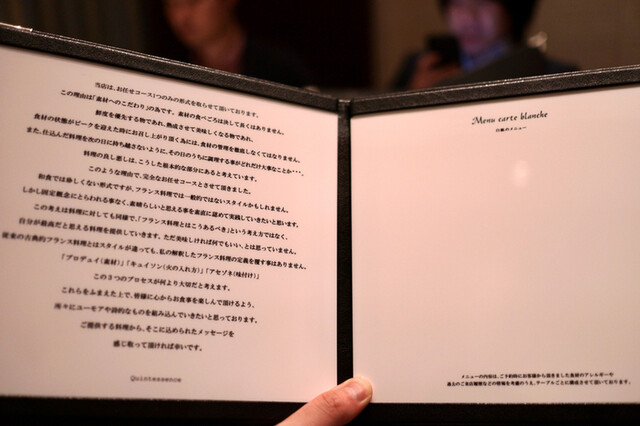 当店は、お任せコース1つのみの形式を取らせて頂いております。
この理由は「素材へのこだわり」の為です。素材の食べごろは決して長くはありません。
鮮度を優先する物であれ、熟成させて美味しくなる物であれ、
食材の状態がピークを迎えた時にお召し上がり頂く為には、食材の管理を徹底しなくてはなりません。
また、仕込んだ料理を次の日に持ち越さないように、その日のうちに調理する事がどれだけ大事なことか・・・。
料理の良し悪しは、こうした根本的な部分にあると考えています。
このような理由で、完全なお任せコースとさせて頂きました。
和食では珍しくない形式ですが、フランス料理では一般的ではないスタイルかもしれません。
しかし固定観念にとらわれる事なく、素晴らしいと思える事を素直に認めて実践していきたいと思います。
この考えは料理に対しても同様で、「フランス料理とはこうあるべき」という考え方ではなく、
自分が最高だと思える料理を提供していきます。ただ美味しければ何でもいい、とは思っていません。
従来の古典的フランス料理とはスタイルが違っても、私の解釈したフランス料理の定義を覆す事はありません。
「プロデュイ(素材)」「キュイソン(火の入れ方)」「アセゾネ(味付け)」
この3つのプロセスが何より大切だと考えます。
これらをふまえた上で、皆様に心からお食事を楽しんで頂けるよう、
所々にユーモアや詩的なものを組み込んでいきたいと思っております。
ご提供する料理から、そこに込められたメッセージを
感じ取って頂ければ幸いです。
Quintessence
Menu carte blanche
白紙のメニュー
メニューの内容は、ご予約時にお客様から頂きました食材のアレルギーや
過去のご来店履歴などの情報を考慮のうえ、テーブルごとに構成させて頂いております。